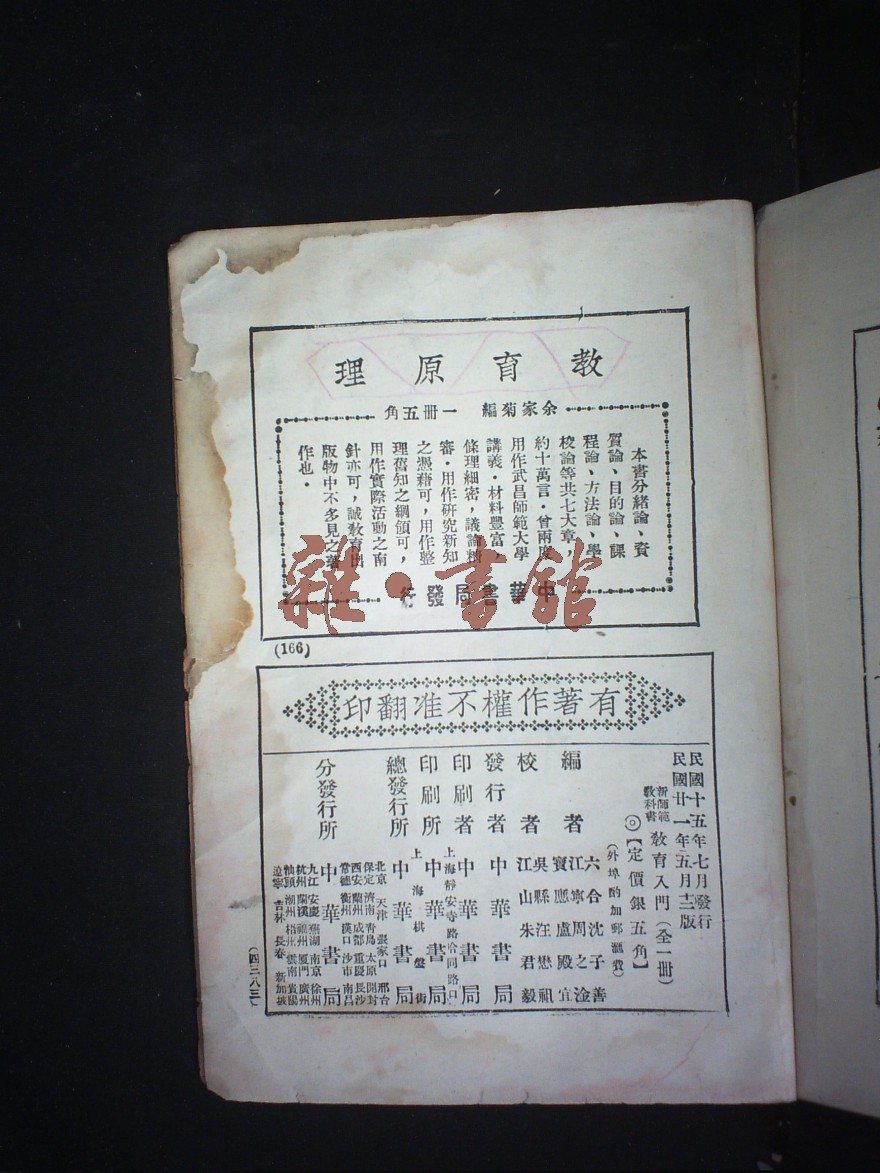 教育原理
余家菊編 一冊五角
本書分緒論、資
質論、目的論、課
程論、方法論、學
校論等共七大章，
約十萬言·曾兩度
用作武昌師範大學
講義·材料豐富，
條理細密，議論精
審·用作研究新知
之憑藉可，用作整
理舊知之綱領可，
用作實際活動之南
針亦可，誠教育出
版物中不多見之著
作也·
中華書局發行
雜·書館
(166)
有著作權不准翻印
民國十五年七月發行
民國廿一年五月十二版
新師範教科書 教育入門（全一冊）
◎【定價銀五角】
（外埠酌加郵滙費）
編者 六合沈子善
江寧周之淦
寶應盧殿宜
校者 吳縣汪懋祖
江山朱君毅
發行者 中華書局
印刷者 中華書局
印刷所 上海靜安寺路哈同路口 中華書局
總發行所 上海棋盤街 中華書局
分發行所 中華書局
北京 天津 張家口 邢台
保定 濟南 青島 太原 開封
西安 蘭州 成都 重慶 長沙
常德 衡州 漢口 沙市 南昌
九江 安慶 蕪湖 南京 徐州
杭州 蘭溪 福州 廈門 廣州
汕頭 潮州 梧州 雲南 貴陽
遼寧 吉林 長春 新加坡
（四三八三）